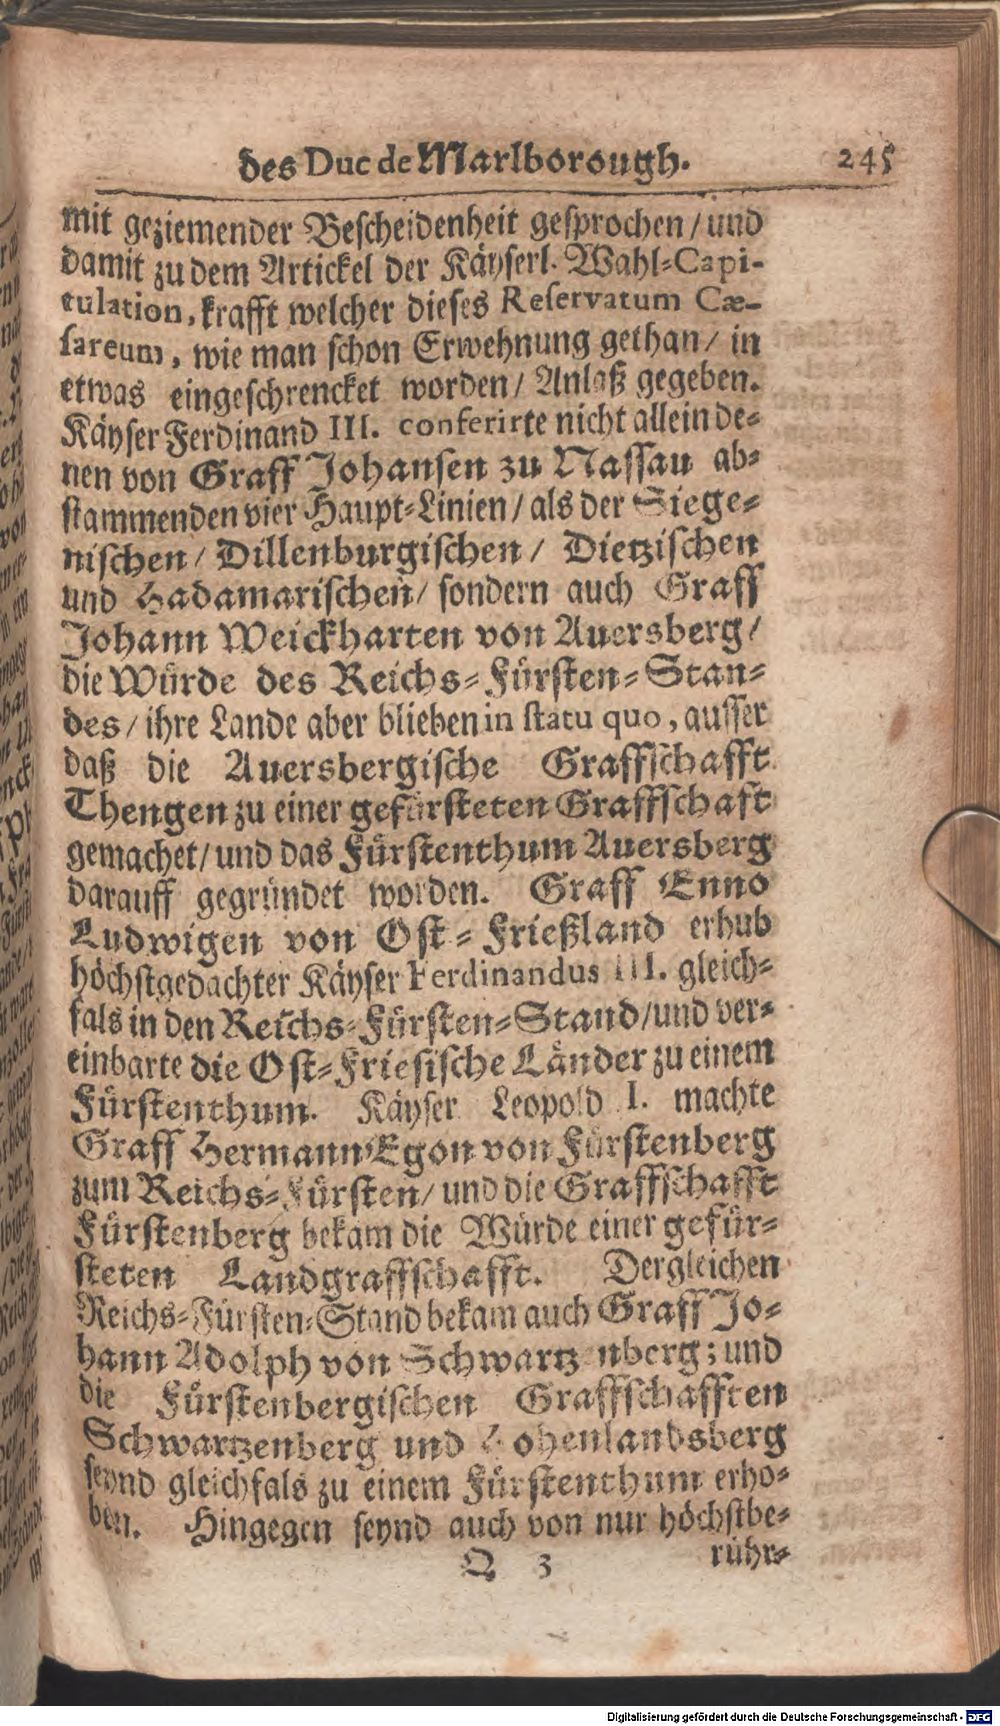 des Duc de Marlborough. 245
mit geziemender Bescheidenheit gesprochen / und
damit zu dem Artickel der Käyserl. Wahl-Capi-
tulation, krafft welcher dieses Reservatum Cæ-
sareum, wie man schon Erwehnung gethan / in
etwas eingeschrencket worden / Anlaß gegeben.
Käyser Ferdinand III. conferirte nicht allein de-
nen von Graff Johansen zu Nassau ab-
stammenden vier Haupt-Linien / als der Siege-
nischen / Dillenburgischen / Dietzischen
und Hadamarischen / sondern auch Graff
Johann Weickharten von Auersberg /
die Würde des Reichs-Fürsten-Stan-
des / ihre Lande aber blieben in statu quo, ausser
daß die Auersbergische Graffschafft
Thengen zu einer gefürsteten Graffschaft
gemachet / und das Fürstenthum Auersberg
darauff gegründet worden. Graff Enno
Ludwigen von Ost-Frießland erhub
höchstgedachter Käyser Ferdinandus III. gleich-
fals in den Reichs-Fürsten-Stand / und ver-
einbarte die Ost-Friesische Länder zu einem
Fürstenthum. Käyser Leopold I. machte
Graff Hermann Egon von Fürstenberg
zum Reichs-Fürsten / und die Graffschafft
Fürstenberg bekam die Würde einer gefür-
steten Landgraffschafft. Dergleichen
Reichs-Fürsten-Stand bekam auch Graff Jo-
hann Adolph von Schwartzenberg; und
die Fürstenbergischen Graffschafften
Schwartzenberg und Hohenlandsberg
seynd gleichfals zu einem Fürstenthum erho-
ben. Hingegen seynd auch von nur höchstbe-
Q 3 rühr-
Digitalisierung gefördert durch die Deutsche Forschungsgemeinschaft - DFG